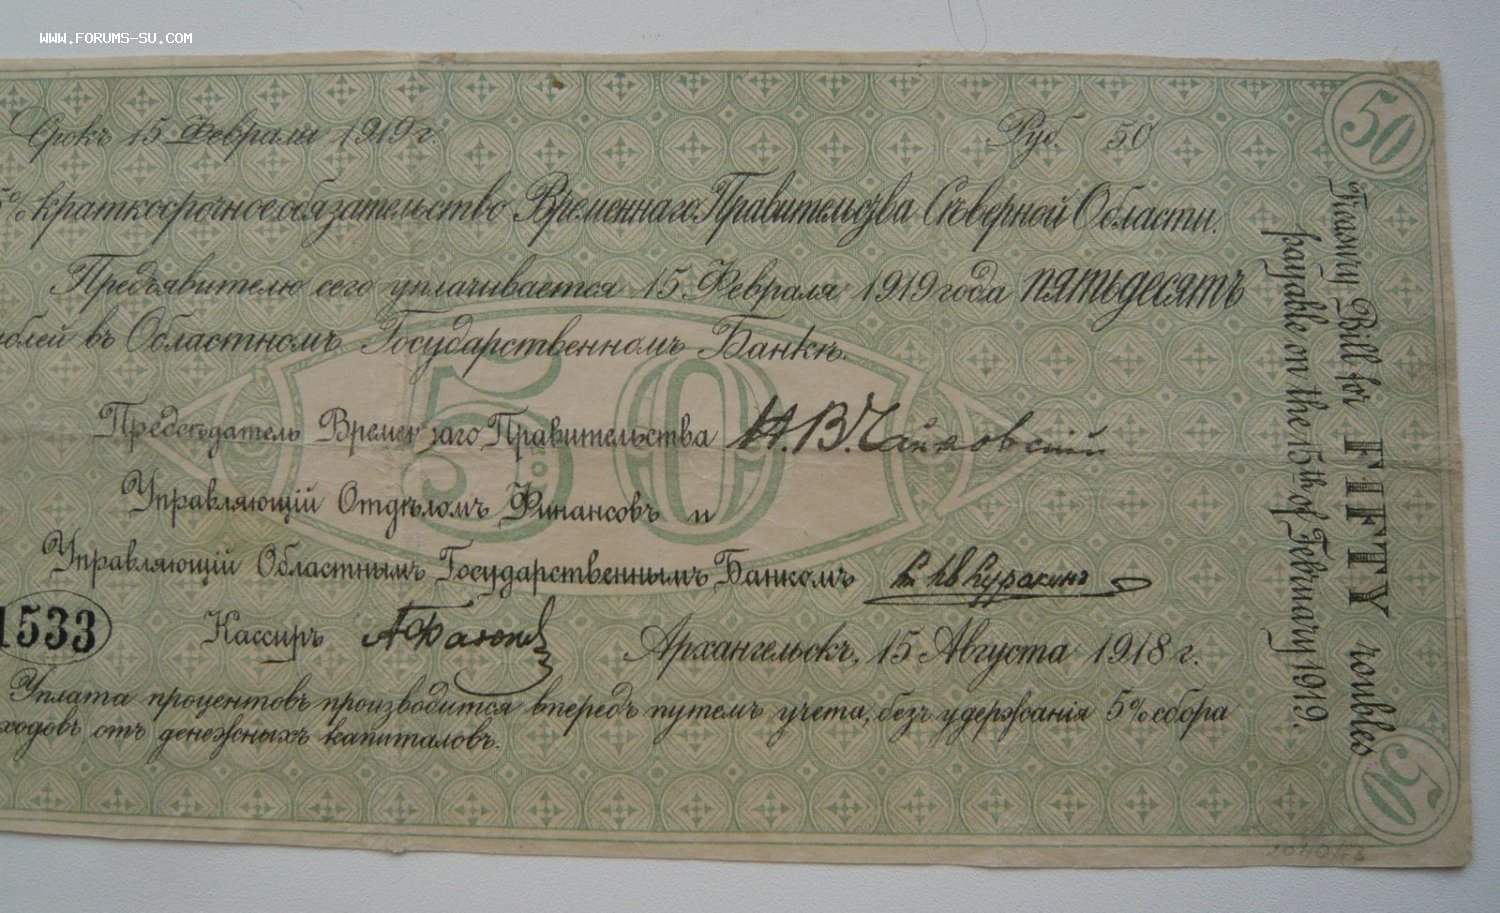 WWW.FORUMS-SU.COM
Срокъ 15 Февраля 1919 г. Руб. 50
50
5% краткосрочное обязательство Временнаго Правительства Съверной Области.
Предъявителю сего уплачивается 15 Февраля 1919 года пятьдесятъ
рублей въ Областномъ Государственномъ Банкѣ.
50
Предсѣдатель Временнаго Правительства Н. В. Чайковскій
Управляющій Отдѣломъ Финансовъ и
Управляющій Областнымъ Государственнымъ Банкомъ
1533 Кассиръ
Архангельскъ, 15 Августа 1918 г.
Уплата процентовъ производится впередъ путемъ учета, безъ удержанія 5% сбора
ходовъ отъ денежныхъ капиталовъ.
Treasury Bill for FIFTY roubles
payable on the 15th of February 1919.
50